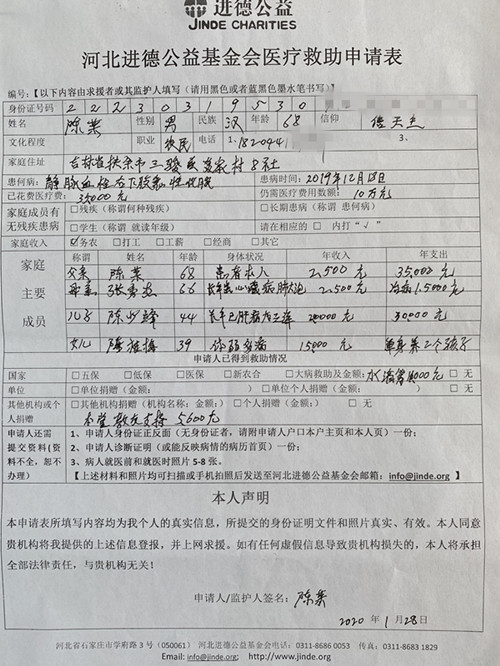 进德公益
JINDE CHARITIES
河北进德公益基金会医疗救助申请表
编号:【以下内容由求援者或其监护人填写(请用黑色或者蓝黑色墨水笔书写)】
身份证号码 2 2 2 3 0 3 1 9 5 3 0
姓名 陈某 性别 男 民族 汉 年龄 68 信仰
文化程度 职业 农民 电话 1、182044 3、
家庭住址 吉林省扶余市三骏 村8社
患何病: 静脉血栓 患病时间: 2019年12月
已花费医疗费: 35000元 仍需医疗费用数额: 10万元
家庭成员有无残疾患病 □残疾(称谓何种残疾) □长期患病(称谓 患何病)
□学生(称谓 就读年级) 请在相应的 □ 内打“√”
家庭收入 务农 □打工 □工薪 □经商 □其它
家庭主要成员 称谓 姓名 年龄 身体状况 年收入 年支出
父亲 陈某 68 患者本人 2,500元 35,000元
母亲 66 2,500元
儿子 44 20000元 30000元
女儿 39 体弱多病 15000元 单身养2个孩子
申请人已得到救助情况
国家 □五保 □低保 □医保 □新农合 □大病救助及金额: 元 □无
单位 □单位捐赠(金额: ) □个人捐赠(金额: ) □无
其他机构或个人捐赠 □其他机构捐赠(机构名称;金额:) □个人捐赠(金额: ) □无
本堂教友支持5600元
申请人还需提交资料(资料不全,恕不办理)
1、申请人身份证正反面(无身份证者,请附申请人户口本户主页和本人页)一份;
2、申请人诊断证明(或能反映病情的病历首页)一份;
3、病人就医前和就医时照片 5-8 张。
【上述材料和照片均可扫描或手机拍照后发送至河北进德公益基金会邮箱:info@jinde.org】
本人声明
本申请表所填写内容均为我个人的真实信息,所提交的身份证明文件和照片真实、有效。本人同意
贵机构将我提供的上述信息登报,并上网求援。如有任何虚假信息导致贵机构损失的,本人将承担
全部法律责任,与贵机构无关!
申请人/监护人签名: 陈某
2020年1月28日
河北省石家庄市学府路 3 号(050061) 河北进德公益基金会电话:0311-8686 0053 传真:0311-8683 1829
Email: info@jinde.org; http://www.jinde.org